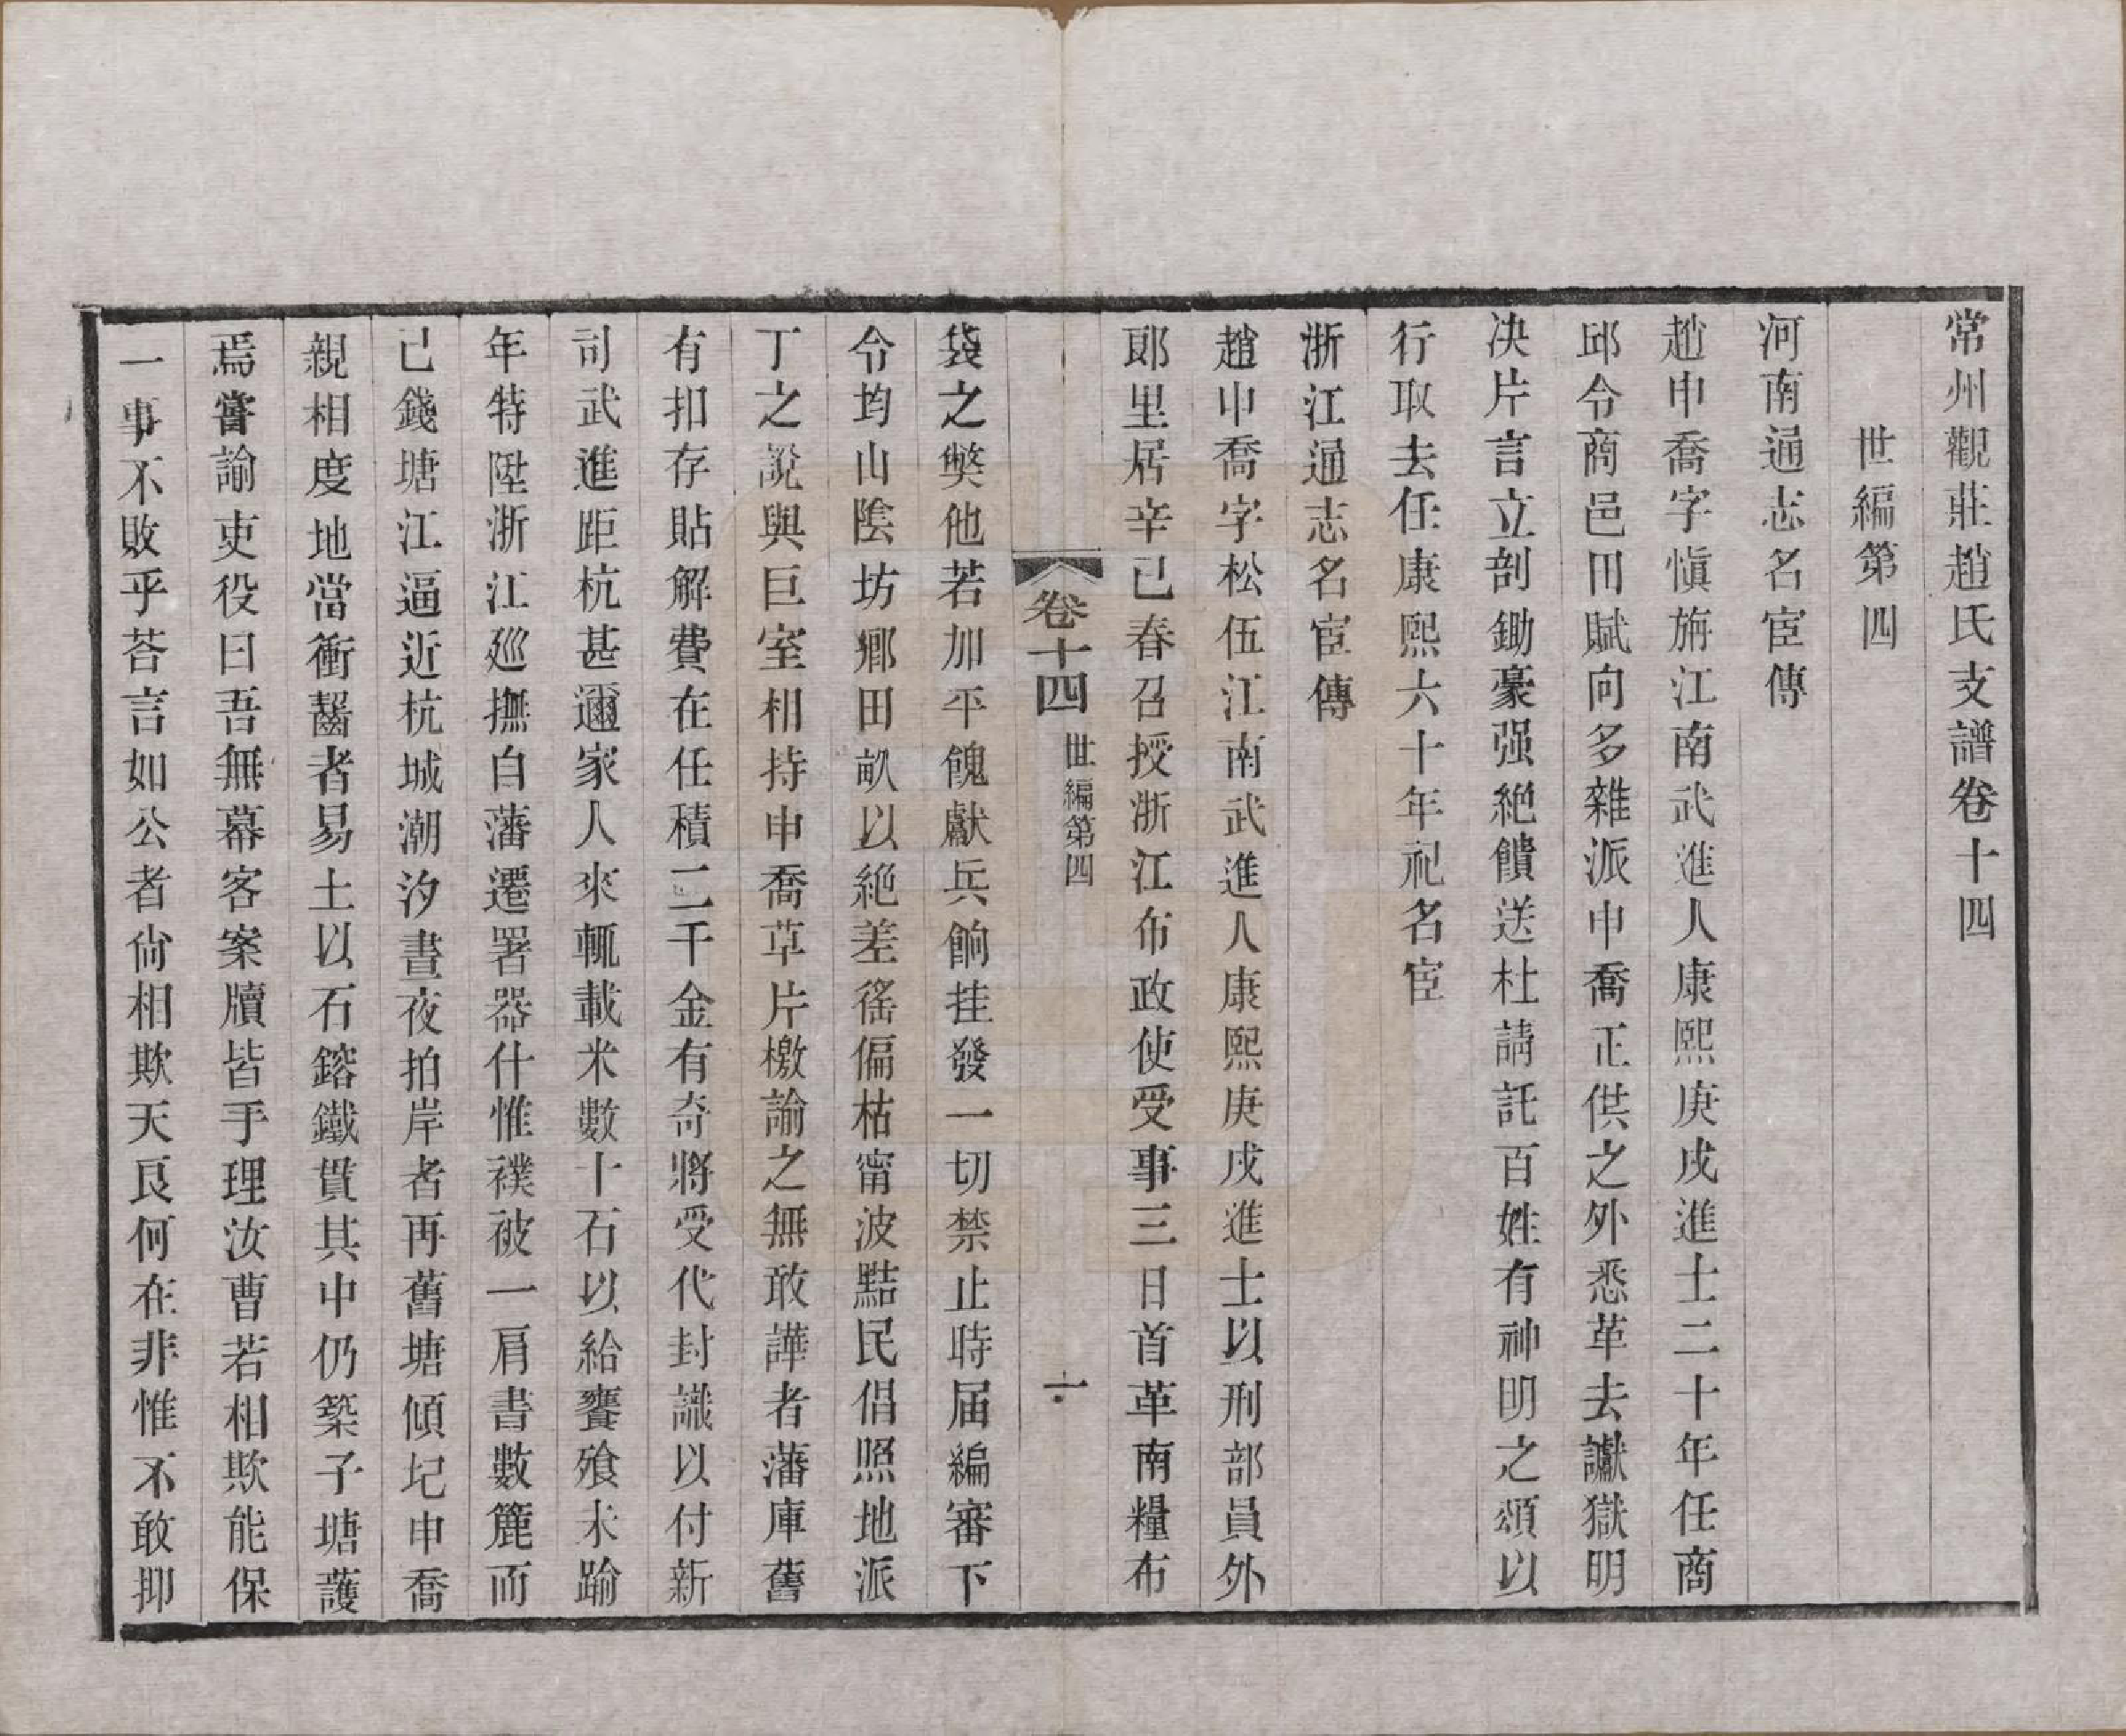 常州觀莊趙氏支譜卷十四
世編第四
河南通志名宦傳
趙申喬字愼旃江南武進人康熙庚戌進士二十年任商
邱令商邑田賦向多雜派申喬正供之外悉革去讞獄明
决片言立剖鋤豪强絕饋送杜請託百姓有神明之頌以
行取去任康熙六十年祀名宦
浙江通志名宦傳
趙申喬字松伍江南武進人康熙庚戌進士以刑部員外
郎里居辛巳春召授浙江布政使受事三日首革南糧布
卷十四 世編第四 一
袋之獘他若加平餽獻兵餉挂發一切禁止時届編審下
令均山陰坊鄉田畝以絕差徭偏枯甯波黠民倡照地派
丁之說與巨室相持申喬草片檄諭之無敢譁者藩庫舊
有扣存貼解費在任積二千金有奇將受代封識以付新
司武進距杭甚邇家人來輒載米數十石以給饔飱未踰
年特陞浙江廵撫自藩遷署器什惟襆被一肩書數簏而
已錢塘江逼近杭城潮汐晝夜拍岸者再舊塘傾圮申喬
親相度地當衝齧者易土以石鎔鐵貫其中仍築子塘護
焉嘗諭吏役曰吾無幕客案牘皆手理汝曹若相欺能保
一事不敗乎荅言如公者尙相欺天良何在非惟不敢抑